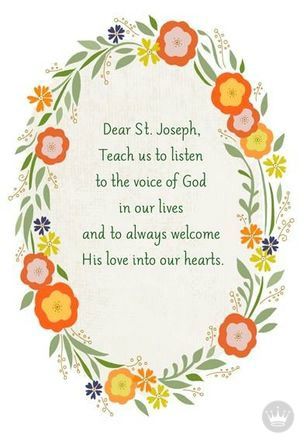 Dear St. Joseph,
Teach us to listen
to the voice of God
in our lives
and to always welcome
His love into our hearts.